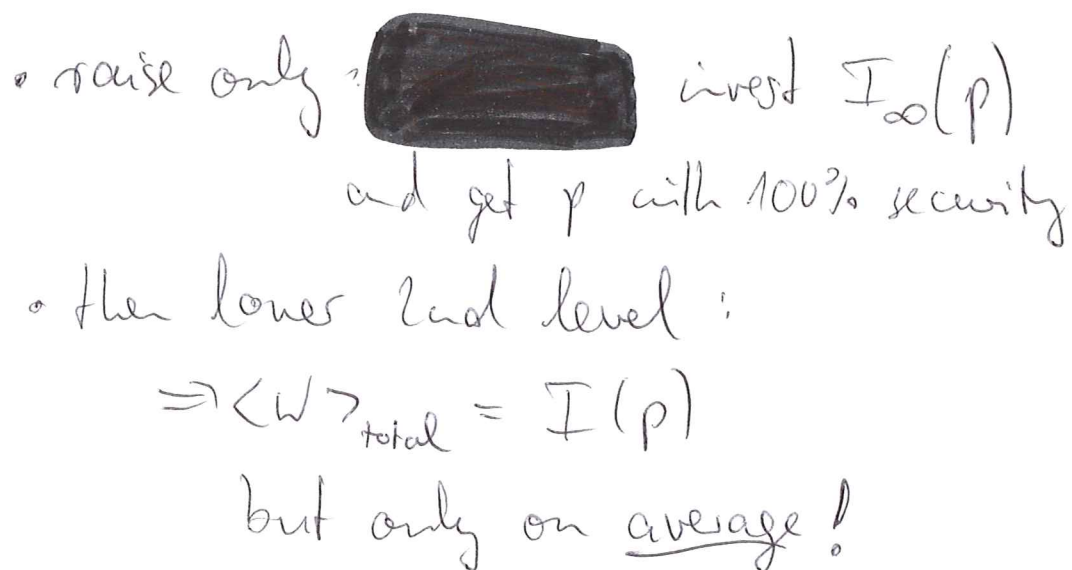 • raise only : invest I∞(p)
and get p with 100% security
• then lower 2nd level :
⇒ <W>total = I(p)
but only on average !